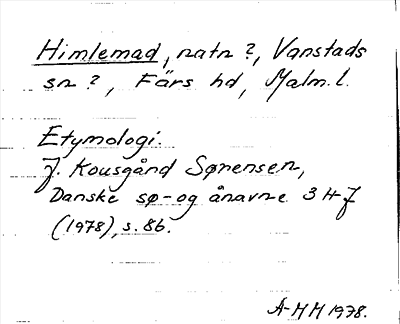 Himlemad, natn ?, Vanstads
sn ?, Färs hd, Malm. l.
Etymologi.
J. Kousgård Sørensen,
Danske sø- og ånavne 3 H-J
(1978), s. 86.
A-MM 1978.